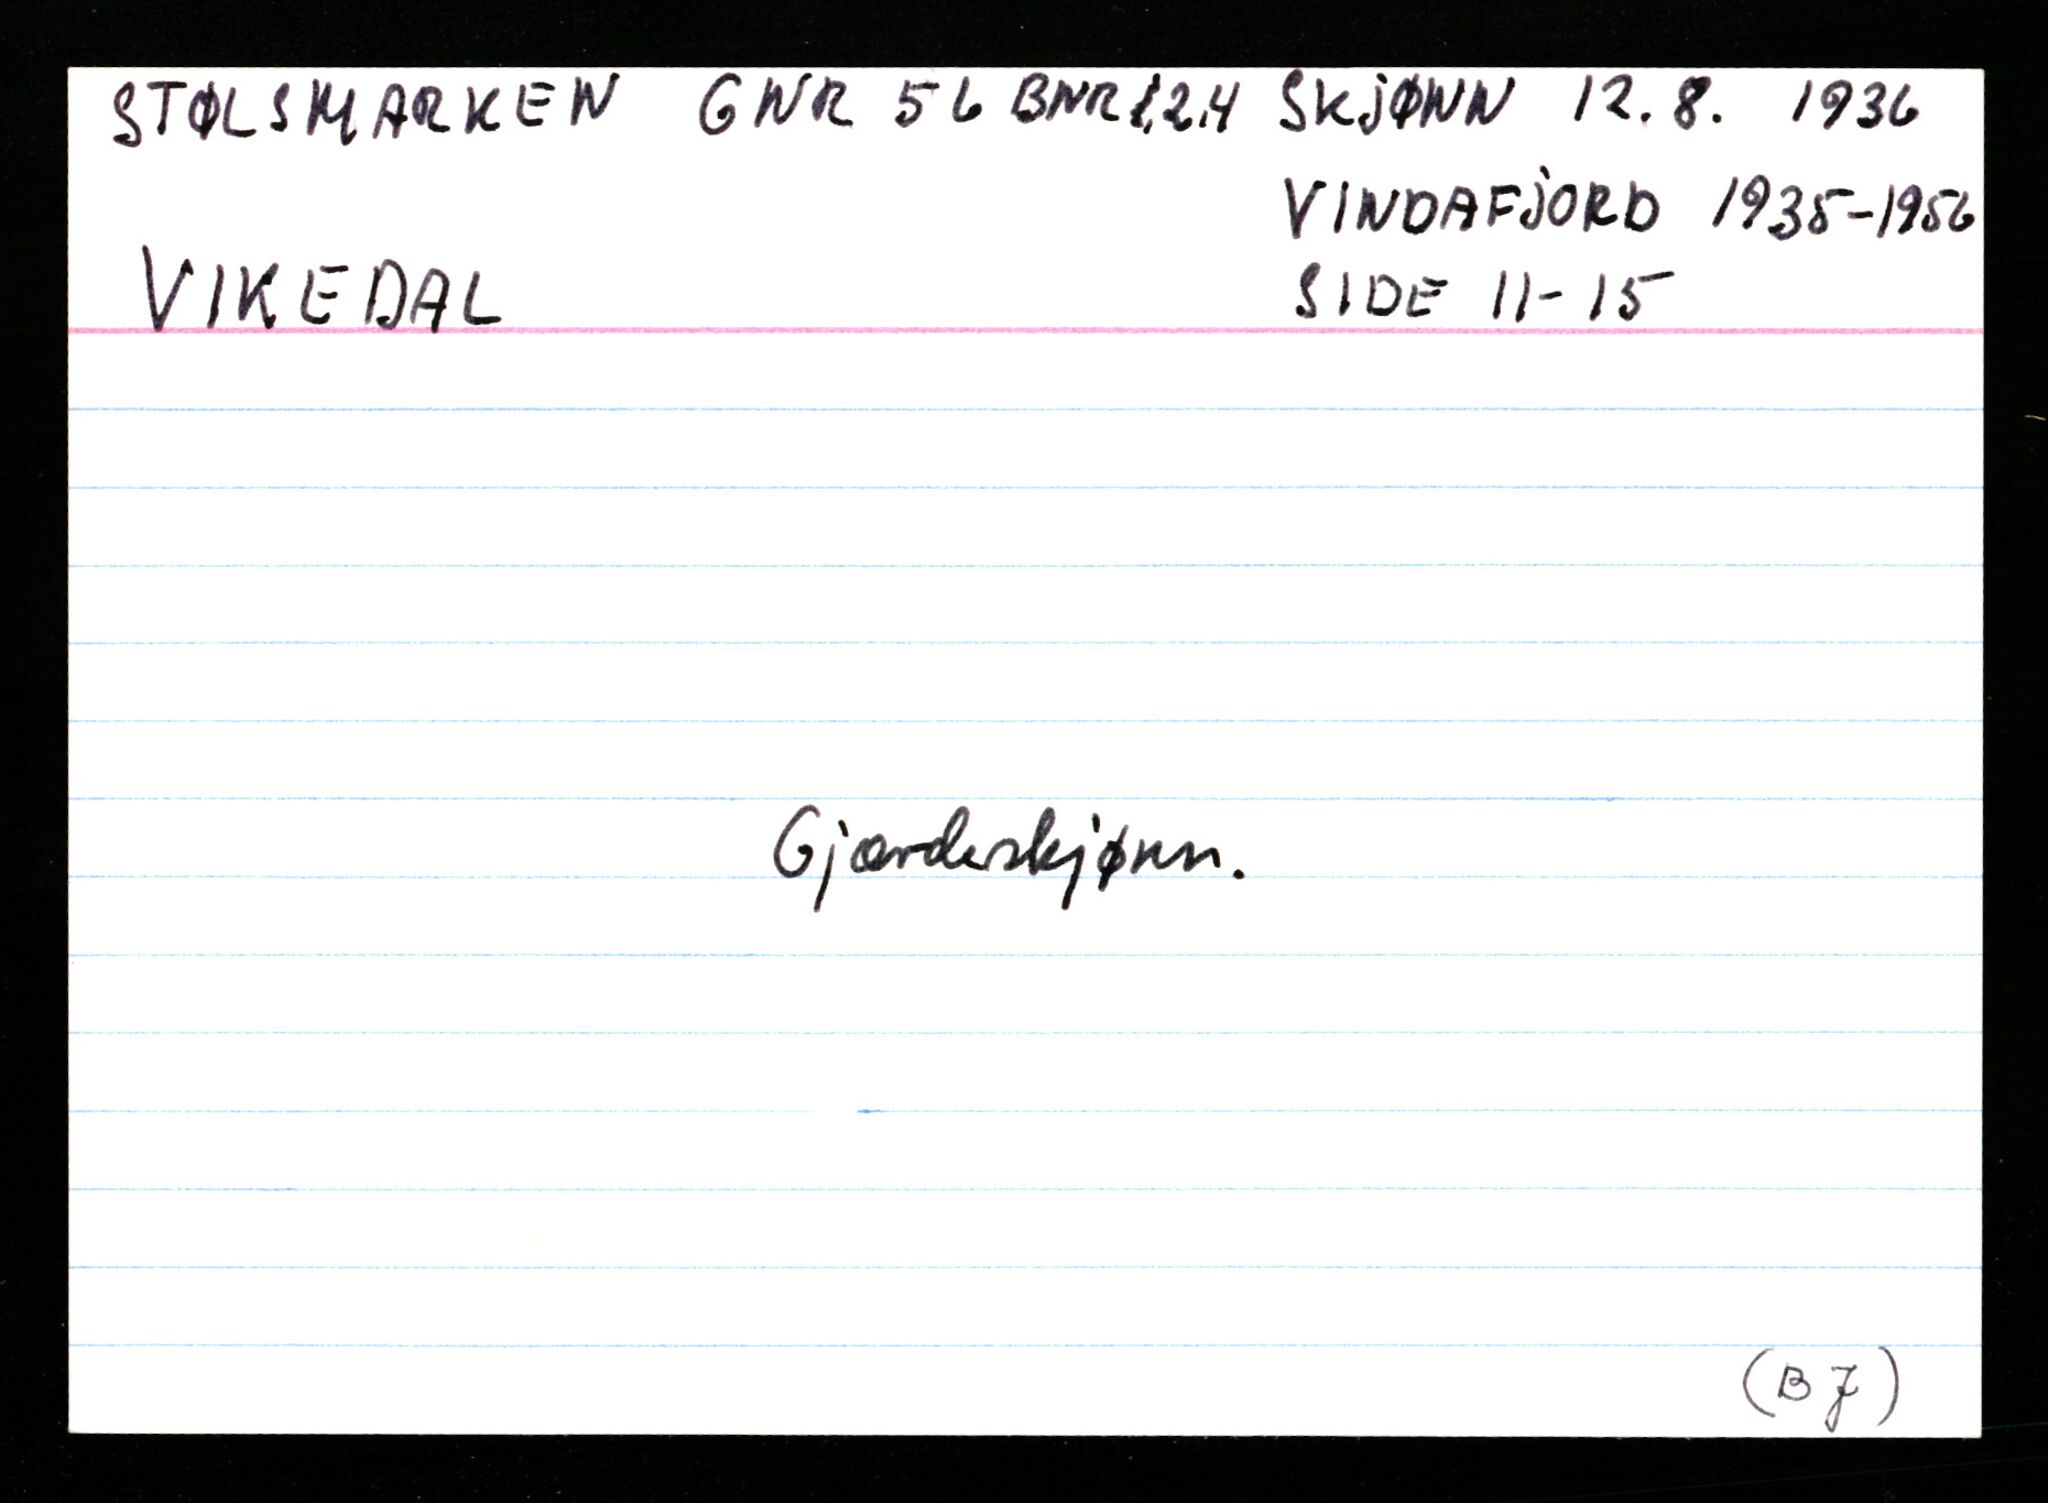 STØLSMARKEN GNR 56 BNR 1,2,4 SKJØNN 12.8. 1936
VINDAFJORD 1935-1956
VIKEDAL SIDE 11-15
Gjærdeskjønn.
(BJ)